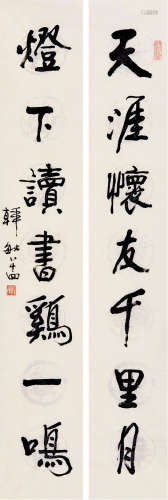 天涯懷友千里月
燈下讀書鷄一鳴